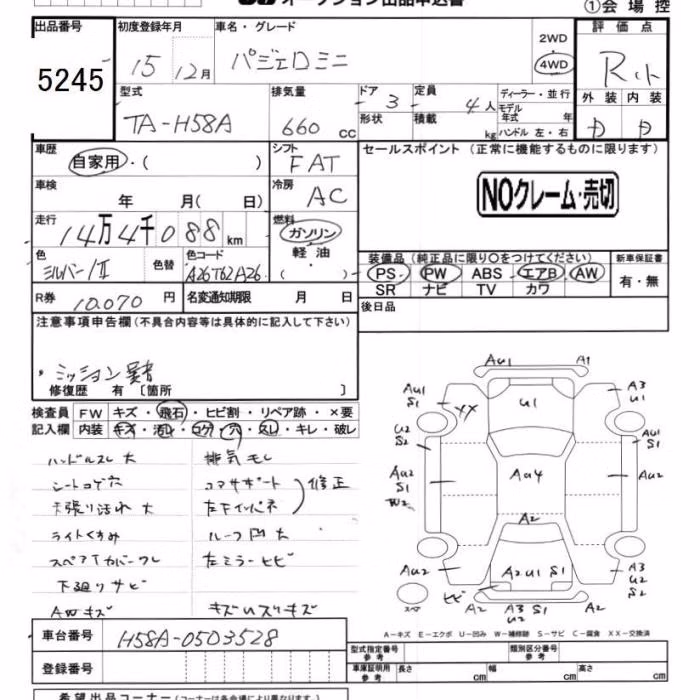 オークション出品申込書
①会場控
出品番号
5245
初度登録年月
15 12月
車名・グレード
パジェロミニ
2WD
4WD
評価点
外装 内装
D D
型式
TA-H58A
排気量
660 cc
ドア 3
形状
定員 4人
積載 kg
ディーラー・並行
モデル年式 年
ハンドル 左・右
車歴
自家用・( )
シフト
FAT
セールスポイント (正常に機能するものに限ります)
NOクレーム・売切
車検 年 月( 日)
冷房
AC
走行
14万4千088km
燃料
ガソリン
軽油
( )
色
シルバー/II
色替
色コード
A26T62A26
装備品 (純正品に限り○をつけてください)
PS PW ABS エアB AW
SR ナビ TV カワ
新車保証書
有・無
R券 10,070 円
名変通知期限 月 日
後日品
注意事項申告欄(不具合内容等は具体的に記入して下さい)
ミッション
修復歴 有 〔箇所 〕
検査員記入欄
FW キズ・飛石・ヒビ割・リペア跡・×要
内装 キズ・汚レ・コゲ・穴・スレ・キレ・破レ
ハンドルスレ大
排気モレ
シートコゲ穴
コアサポート
修正
左ドインパネ
ライトくすみ
ルーフ凹大
スペアTカバーワレ
左ミラーヒビ
下廻りサビ
AWキズ
Au1 A1
Au1 S1
XX
U1
A3 U1
U2 S2
Au1 S1
Au2 S1 W2
Au4
Au2
A2
Au2
A2U1 S1
A3 U2 S2
スペア
ヒビ
A2
A3 U2 S1
A2
A-キズ E-エクボ U-凹み W-補修跡 S-サビ C-腐食 XX-交換済
車台番号
H58A-0503528
登録番号
型式指定番号 参考
類別区分番号 参考
車庫証明用 参考
長さ cm
幅 cm
高さ cm
希望出品コーナー(コーナーは各会場により異なります。)